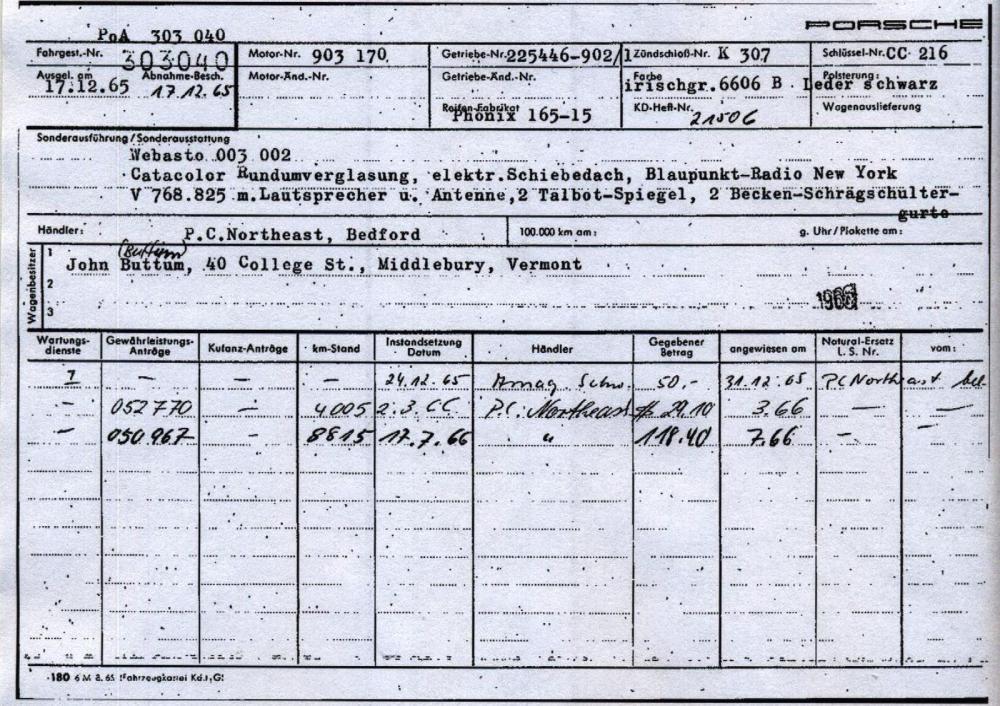 PORSCHE
PoA 303 040
Fahrgest.-Nr. 303040 Motor-Nr. 903 170 Getriebe-Nr. 225446-902/1 Zündschloß-Nr. K 307 Schlüssel-Nr. CC 216
Ausgel. am 17.12.65 Abnahme-Besch. 17.12.65 Motor-Änd.-Nr. Getriebe-Änd.-Nr. Farbe irischgr.6606 B Polsterung: Leder schwarz
Reifen-Fabrikat Phönix 165-15 KD-Heft-Nr. 21506 Wagenauslieferung
Sonderausführung/Sonderausstattung
Webasto 003 002
Catacolor Rundumverglasung, elektr.Schiebedach, Blaupunkt-Radio New York
V 768.825 m.Lautsprecher u. Antenne,2 Talbot-Spiegel, 2 Becken-Schrägschulter-
gurte
Händler: P.C.Northeast, Bedford 100.000 km am: g. Uhr/Plakette am:
(Buttum)
Wagenbesitzer
1 John Buttum, 40 College St., Middlebury, Vermont
2
3
Wartungs-dienste Gewährleistungs-Anträge Kulanz-Anträge km-Stand Instandsetzung Datum Händler Gegebener Betrag angewiesen am Natural-Ersatz L.S.Nr. vom:
1 — — — 24.12.65 Amag Schw. 50,- 31.12.65 PC Northeast bel.
— 052770 — 4005 2.3.66 P.C. Northeast $ 29.10 3.66 — —
— 050967 — 8815 17.7.66 " 118.40 7.66 — —
180 6 M 8. 65 (Fahrzeugkartei Kd., G)